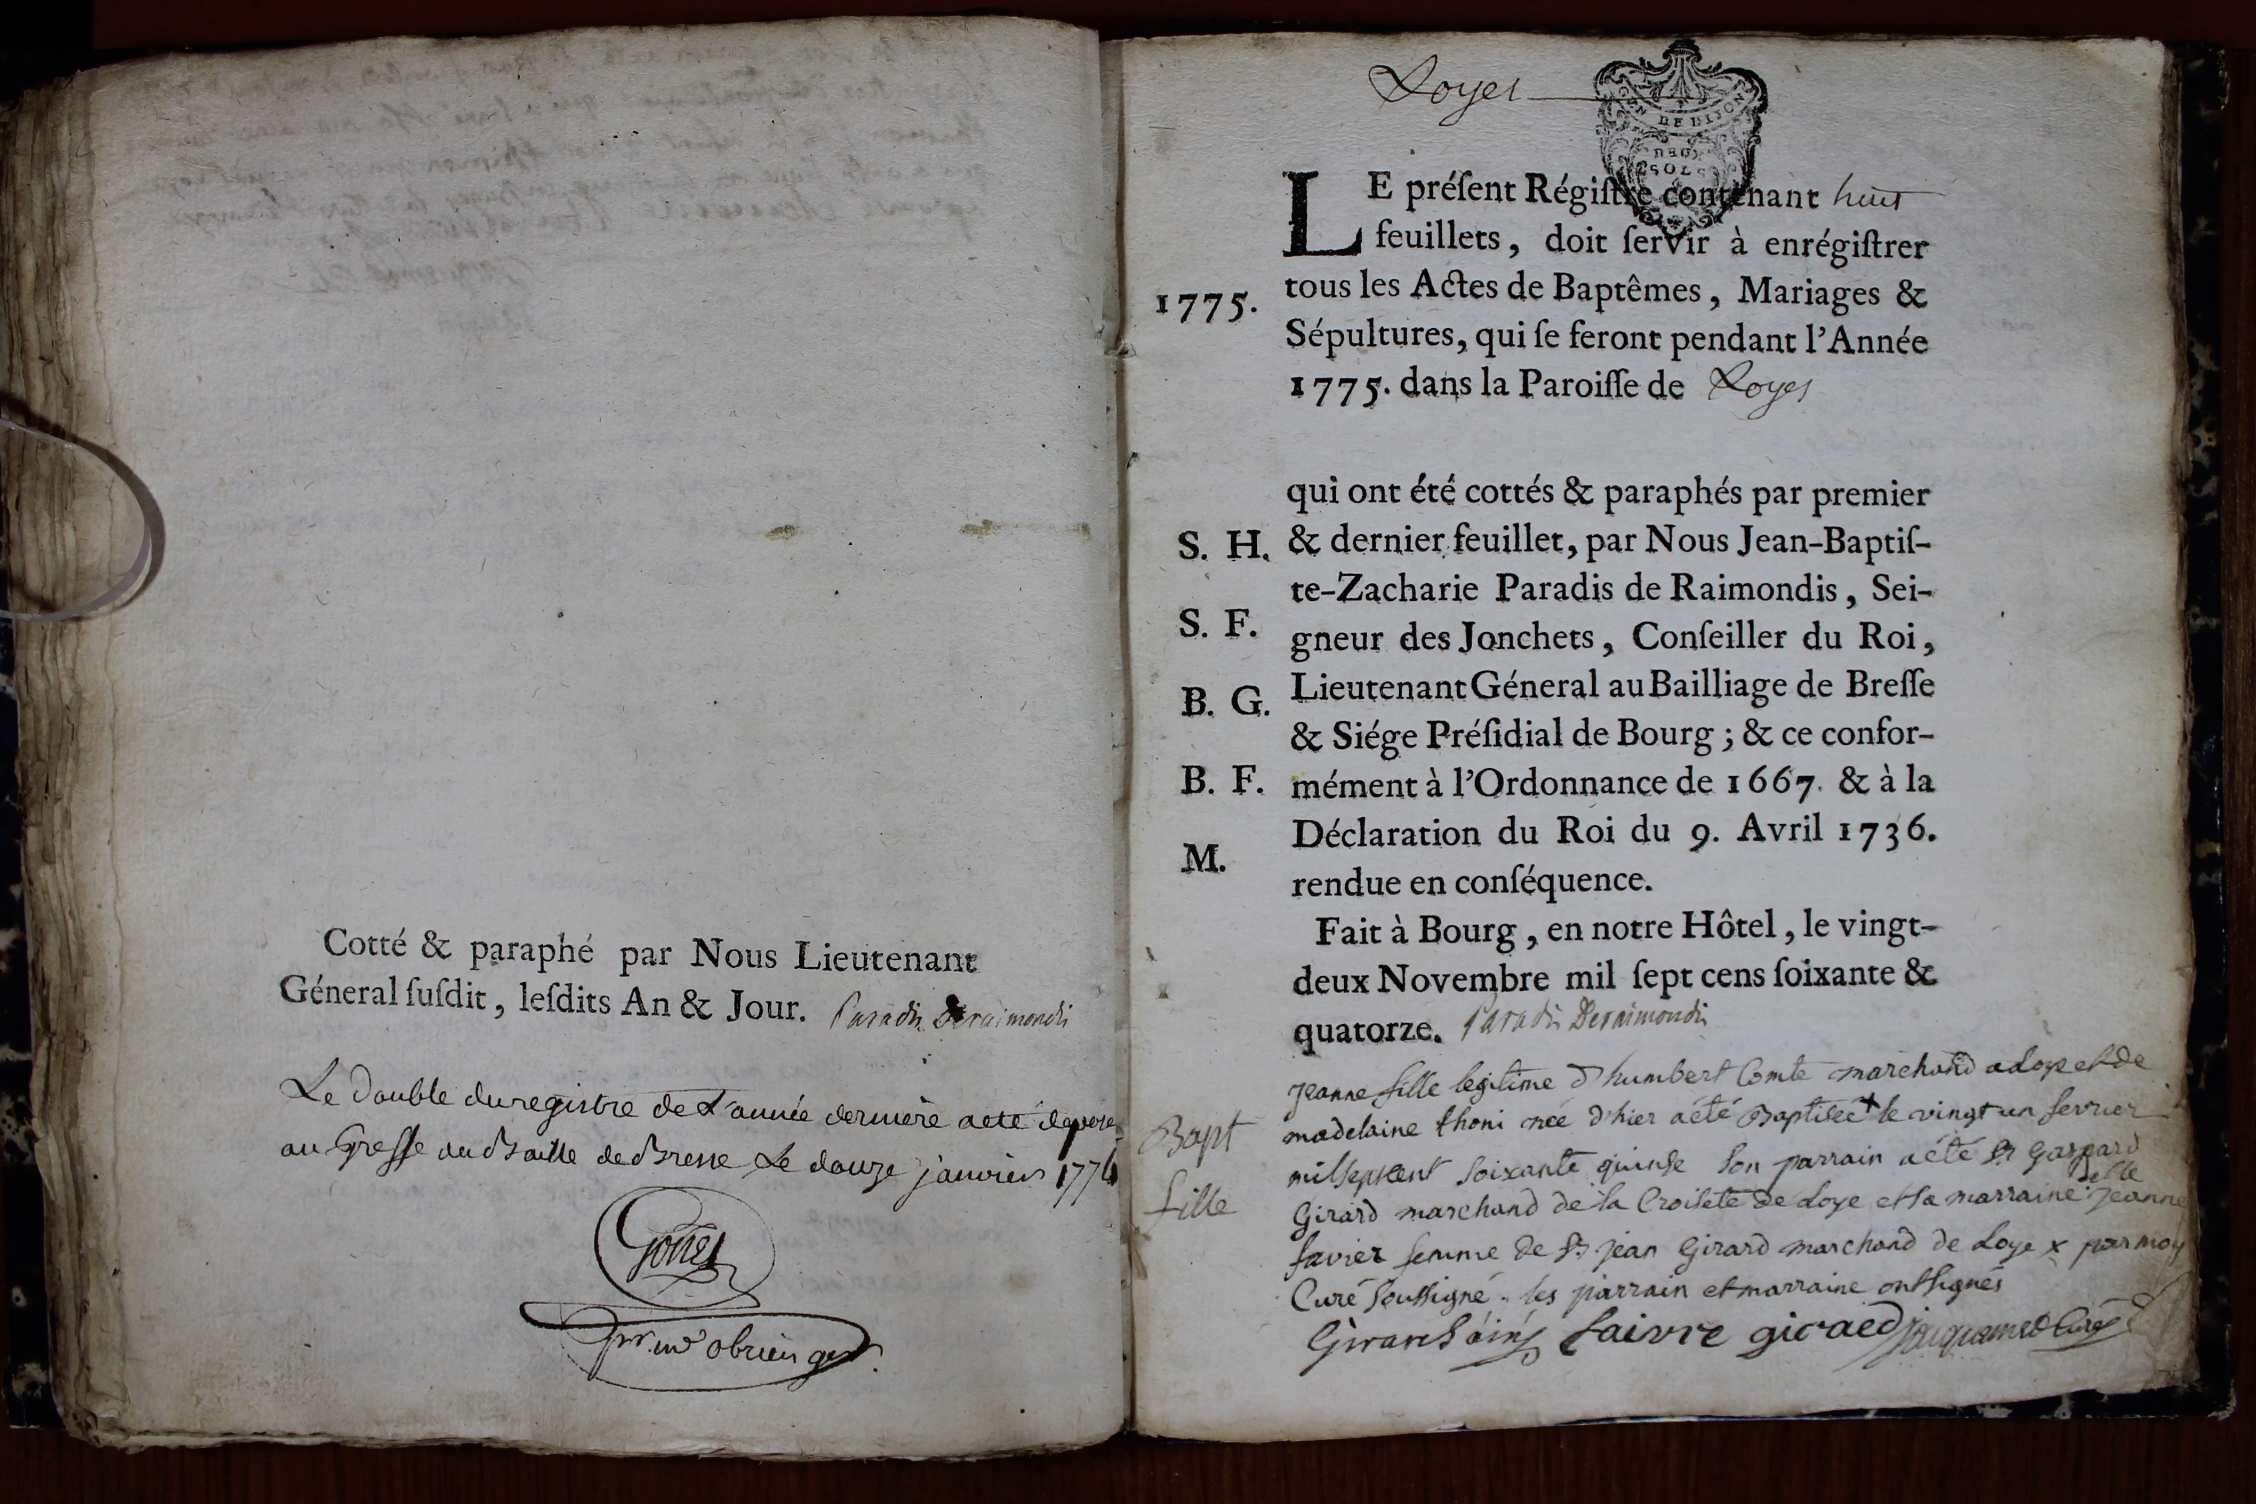 Cotté & paraphé par Nous Lieutenant
Géneral ſuſdit, leſdits An & Jour. Paradis Deraimondis
Le double du registre de L'année derniere a eté déposé
au Greffe du Baille de Bresse Le douze janvier 1774
Loyes
GEN DE DIJON
L E préſent Régiſtre contenant huit
feuillets, doit ſervir à enrégiſtrer
tous les Actes de Baptêmes, Mariages &
1775.
Sépultures, qui ſe feront pendant l'Année
1775. dans la Paroiſſe de Loyes
qui ont été cottés & paraphés par premier
S. H. & dernier feuillet, par Nous Jean-Baptiſ-
te-Zacharie Paradis de Raimondis, Sei-
S. F. gneur des Jonchets, Conſeiller du Roi,
B. G. Lieutenant Géneral au Bailliage de Breſſe
& Siége Préſidial de Bourg; & ce confor-
B. F. mément à l'Ordonnance de 1667. & à la
Déclaration du Roi du 9. Avril 1736.
M. rendue en conſéquence.
Fait à Bourg, en notre Hôtel, le vingt-
deux Novembre mil ſept cens ſoixante &
quatorze. Paradis Deraimondis
Bapt
fille
jeanne fille legitime d'humbert Comte marchand a Loye et de
madelaine thoni née d'hier a été Baptisée le vingt un fevrier
mil sept cent soixante quinse son parrain a été Sr Gaspard
Girard marchand de la Croisete de Loye et sa marraine delle jeanne
favier femme de Sr jean Girard marchand de Loye x par moy
Curé soussigné. les parrain et marraine ont signés
faivre girard jaquemet Curé